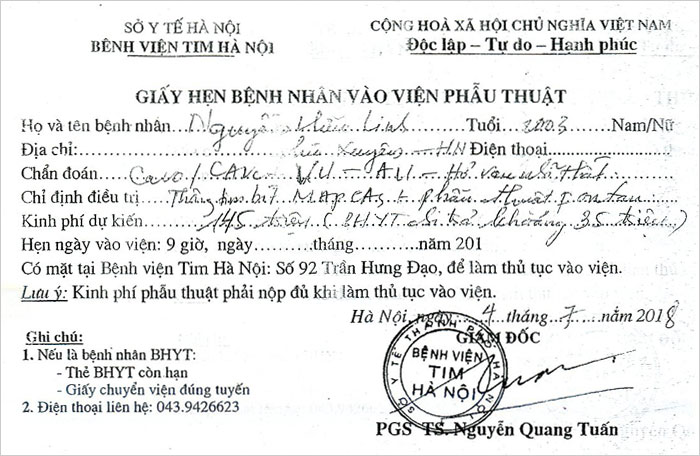 SỞ Y TẾ HÀ NỘI
BỆNH VIỆN TIM HÀ NỘI
CỘNG HOÀ XÃ HỘI CHỦ NGHĨA VIỆT NAM
Độc lập – Tự do – Hạnh phúc
GIẤY HẸN BỆNH NHÂN VÀO VIỆN PHẪU THUẬT
Họ và tên bệnh nhân....Nguyễn Hữu Linh.....Tuổi...2003......Nam/Nữ
Địa chỉ:.......Xuyên – HN Điện thoại.................
Chẩn đoán.......Hở van nhĩ thất
Chỉ định điều trị....Thông tim bít MAPCAs + phẫu thuật
Kinh phí dự kiến.....145 triệu (BHYT chi trả khoảng 35 triệu)
Hẹn ngày vào viện: 9 giờ, ngày...........tháng.............năm 201
Có mặt tại Bệnh viện Tim Hà Nội: Số 92 Trần Hưng Đạo, để làm thủ tục vào viện.
Lưu ý: Kinh phí phẫu thuật phải nộp đủ khi làm thủ tục vào viện.
Hà Nội, ngày....4...tháng...7....năm 2018
GIÁM ĐỐC
SỞ Y TẾ THÀNH PHỐ HÀ NỘI
BỆNH VIỆN
TIM
HÀ NỘI
PGS TS. Nguyễn Quang Tuấn
Ghi chú:
1. Nếu là bệnh nhân BHYT:
- Thẻ BHYT còn hạn
- Giấy chuyển viện đúng tuyến
2. Điện thoại liên hệ: 043.9426623